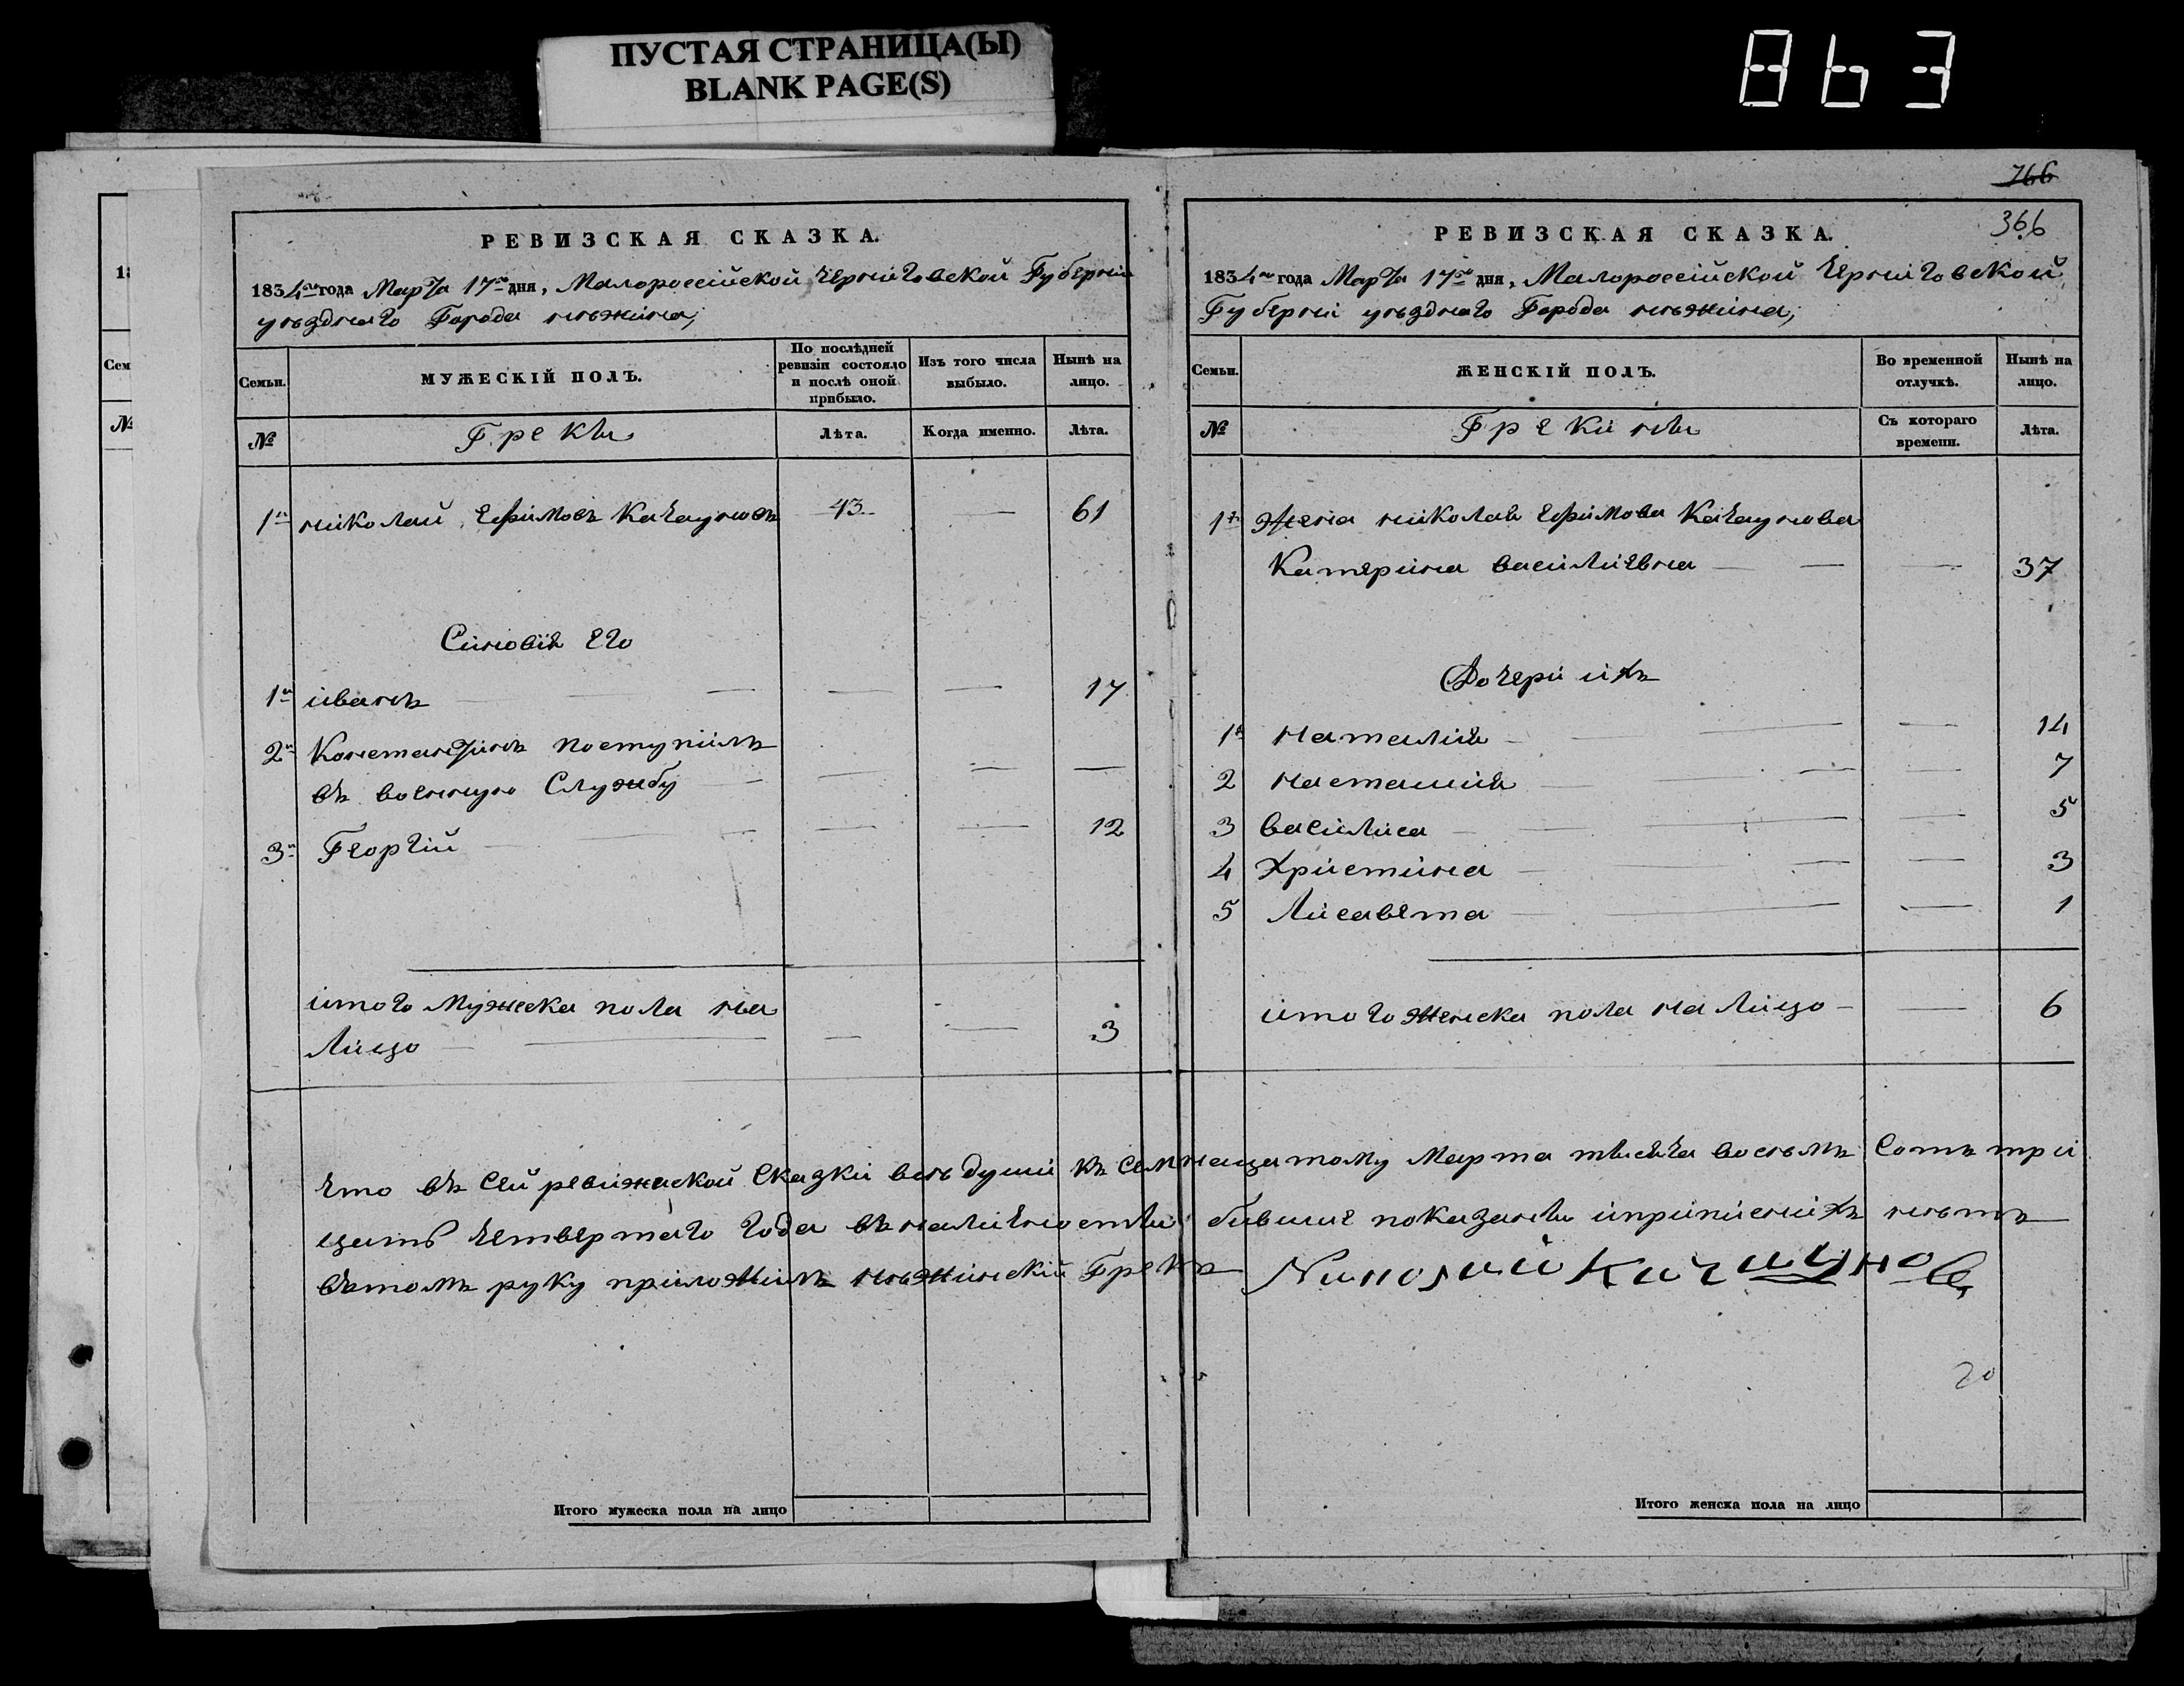 ПУСТАЯ СТРАНИЦА(Ы)
BLANK PAGE(S)
863
РЕВИЗСКАЯ СКАЗКА.
1834го года Марта 17го дня, Малороссійской Черніговской Губерніи
уѣзднаго Города нѣжина;
Семьи.
МУЖЕСКІЙ ПОЛЪ.
По послѣдней ревизіи состояло и послѣ оной прибыло.
Изъ того числа выбыло.
Нынѣ на лицо.
№
Греки
Лѣта.
Когда именно.
Лѣта.
1й ніколай Ефімовъ Качауновъ 43 — 61
Сіновія его
1й іванъ — — — — 17
2й Константінъ поступілъ
въ военную Службу — — — —
3й Георгій — — — — 12
ітого Мужеска пола на
Ліцо — — — — 3
Итого мужеска пола на лицо
766
366
РЕВИЗСКАЯ СКАЗКА.
1834го года Марта 17го дня, Малороссійской Черніговской
Губерніи уѣзднаго Города нѣжина;
Семьи.
ЖЕНСКІЙ ПОЛЪ.
Во временной отлучкѣ.
Нынѣ на лицо.
№
Грекіни
Съ котораго времени.
Лѣта.
1я Жена ніколая Ефімова Качаунова
Катеріна васіліевна — — — 37
Дочері іхъ
1я Наталія — — — — 14
2 Настасия — — — — 7
3 васіліса — — — — 5
4 Хрістіна — — — — 3
5 Лісавета — — — — 1
ітого женска пола на Ліцо — — 6
Что въ Сей ревизской Скаски всѣ души къ Семнацатому Марта тысяча восѣмъ Сотъ три
цать четвертаго года въ налічностьи бившие показаны іпріпісніхъ нѣтъ
вътомъ руку пріложілъ нѣжінскій Грекъ Николай Качаунов
20
Итого женска пола на лицо
Сем
№